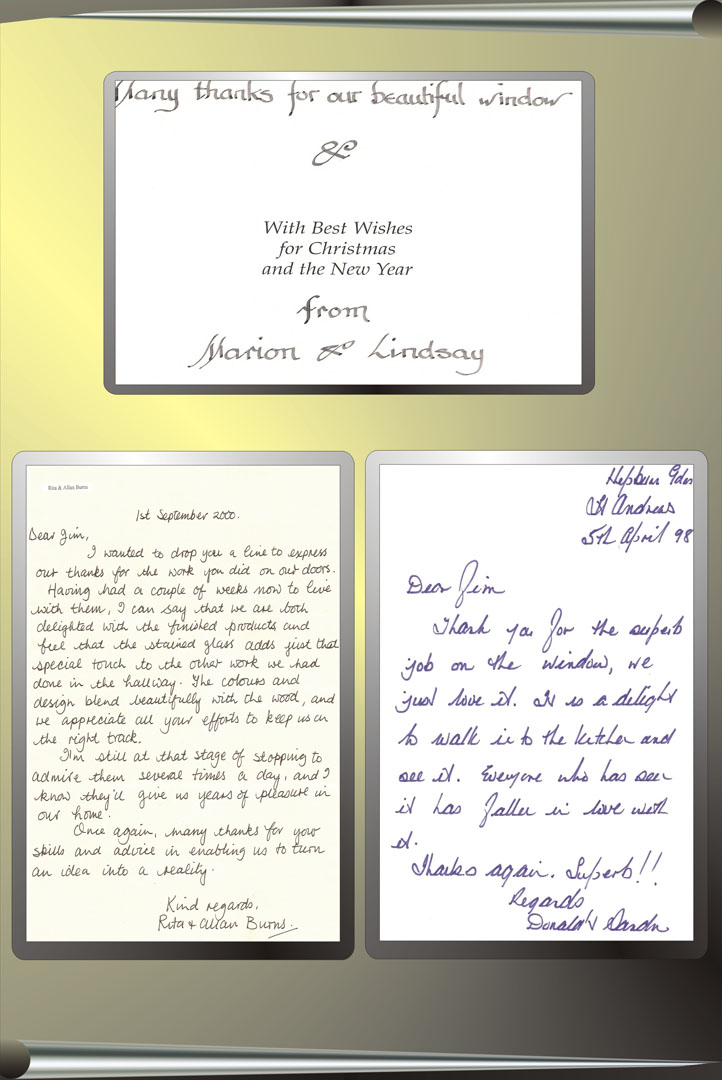 Many thanks for our beautiful window
&
With Best Wishes
for Christmas
and the New Year
from
Marion & Lindsay
Rita & Allan Burns
1st September 2000.
Dear Jim,
I wanted to drop you a line to express
our thanks for the work you did on our doors.
Having had a couple of weeks now to live
with them, I can say that we are both
delighted with the finished products and
feel that the stained glass adds just that
special touch to the other work we had
done in the hallway. The colours and
design blend beautifully with the wood, and
we appreciate all your efforts to keep us on
the right track.
I'm still at that stage of stopping to
admire them several times a day, and I
know they'll give us years of pleasure in
our home.
Once again, many thanks for your
skills and advice in enabling us to turn
an idea into a reality.
Kind regards,
Rita & Allan Burns.
Hepburn Gdns
St Andrews
5th April 98
Dear Jim
Thank you for the superb
job on the window, we
just love it. It is a delight
to walk in to the kitchen and
see it. Everyone who has seen
it has fallen in love with
it.
Thanks again. Superb!!
Regards
Donald &